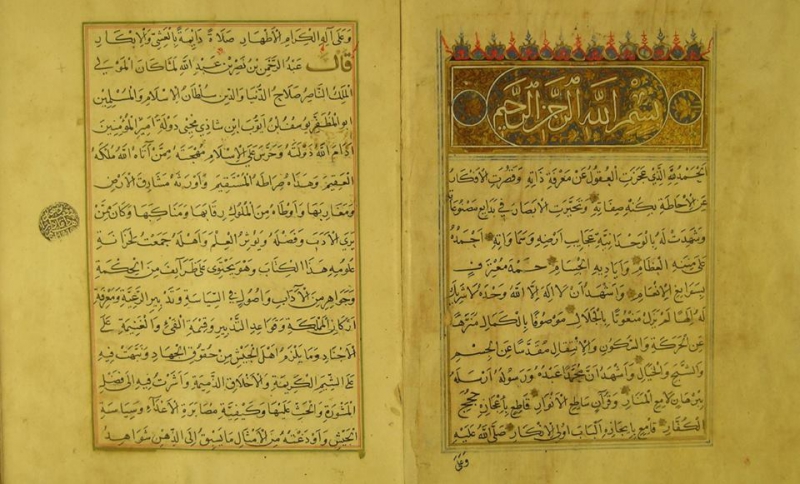 بسم الله الرحمن الرحيم
الحمد لله الذي عجزت العقول عن معرفة ذاته وقصرت الافكار
عن الاحاطة بكنه صفاته وتحيرت الابصار في بدايع مصنوعاته
وشهدت له بالوحدانية عجايب ارضه وسماواته احمده
على مننه العظام واياديه الجسام حمد معترف
بسوابغ الانعام واشهد ان لا اله الا الله وحده لا شريك
له الها لم يزل منعوتا بالجلال موصوفا بالكمال منزها
عن الحركة والسكون والانتقال مقدسا عن الجسم
والشبح والخيال واشهد ان محمدا عبده ورسوله ارسله
ببرهان لامع المنار وقرآن ساطع الانوار قاطع باعجازه حجج
الكفار قامع بايجازه الباب اولى الانكار صلى الله عليه
وعلى
وعلى آله الكرام الاطهار صلاة دايمة بالعشي والابكار
قال عبد الرحمن بن نصر بن عبد الله لما كان المولى
الملك الناصر صلاح الدنيا والدين سلطان الاسلام والمسلمين
ابو المظفر يوسف بن ايوب ابن شاذي محيى دولة امير المؤمنين
ادام الله دولته وحرس على الاسلام مهجته ممن آتاه الله ملكه
العقيم وهداه صراطه المستقيم واورثه مشارق الارض
ومغاربها واوطاه من الملوك رقابها ومناكبها وكان ممن
يرى الادب وفضله ويؤثر العلم واهله جمعت لخزانة
علومه هذا الكتاب وهو يحتوي على طرايف من الحكمة
وجواهر من الآداب واصول في السياسة وتدبير الرعية ومعرفة
اركان المملكة وقواعد التدبير وقسمة الفيء والغنيمة على
الاجناد وما يلزم اهل الجيش من حقوق الجهاد ونبهت فيه
على الشيم الكريمة والاخلاق الذميمة واشرت فيه الى فضل
المشورة والحث عليها وكيفية مصابرة الاعداء وسياسة
الجيش واودعته من الامثال ما يسبق الى الذهن شواهد